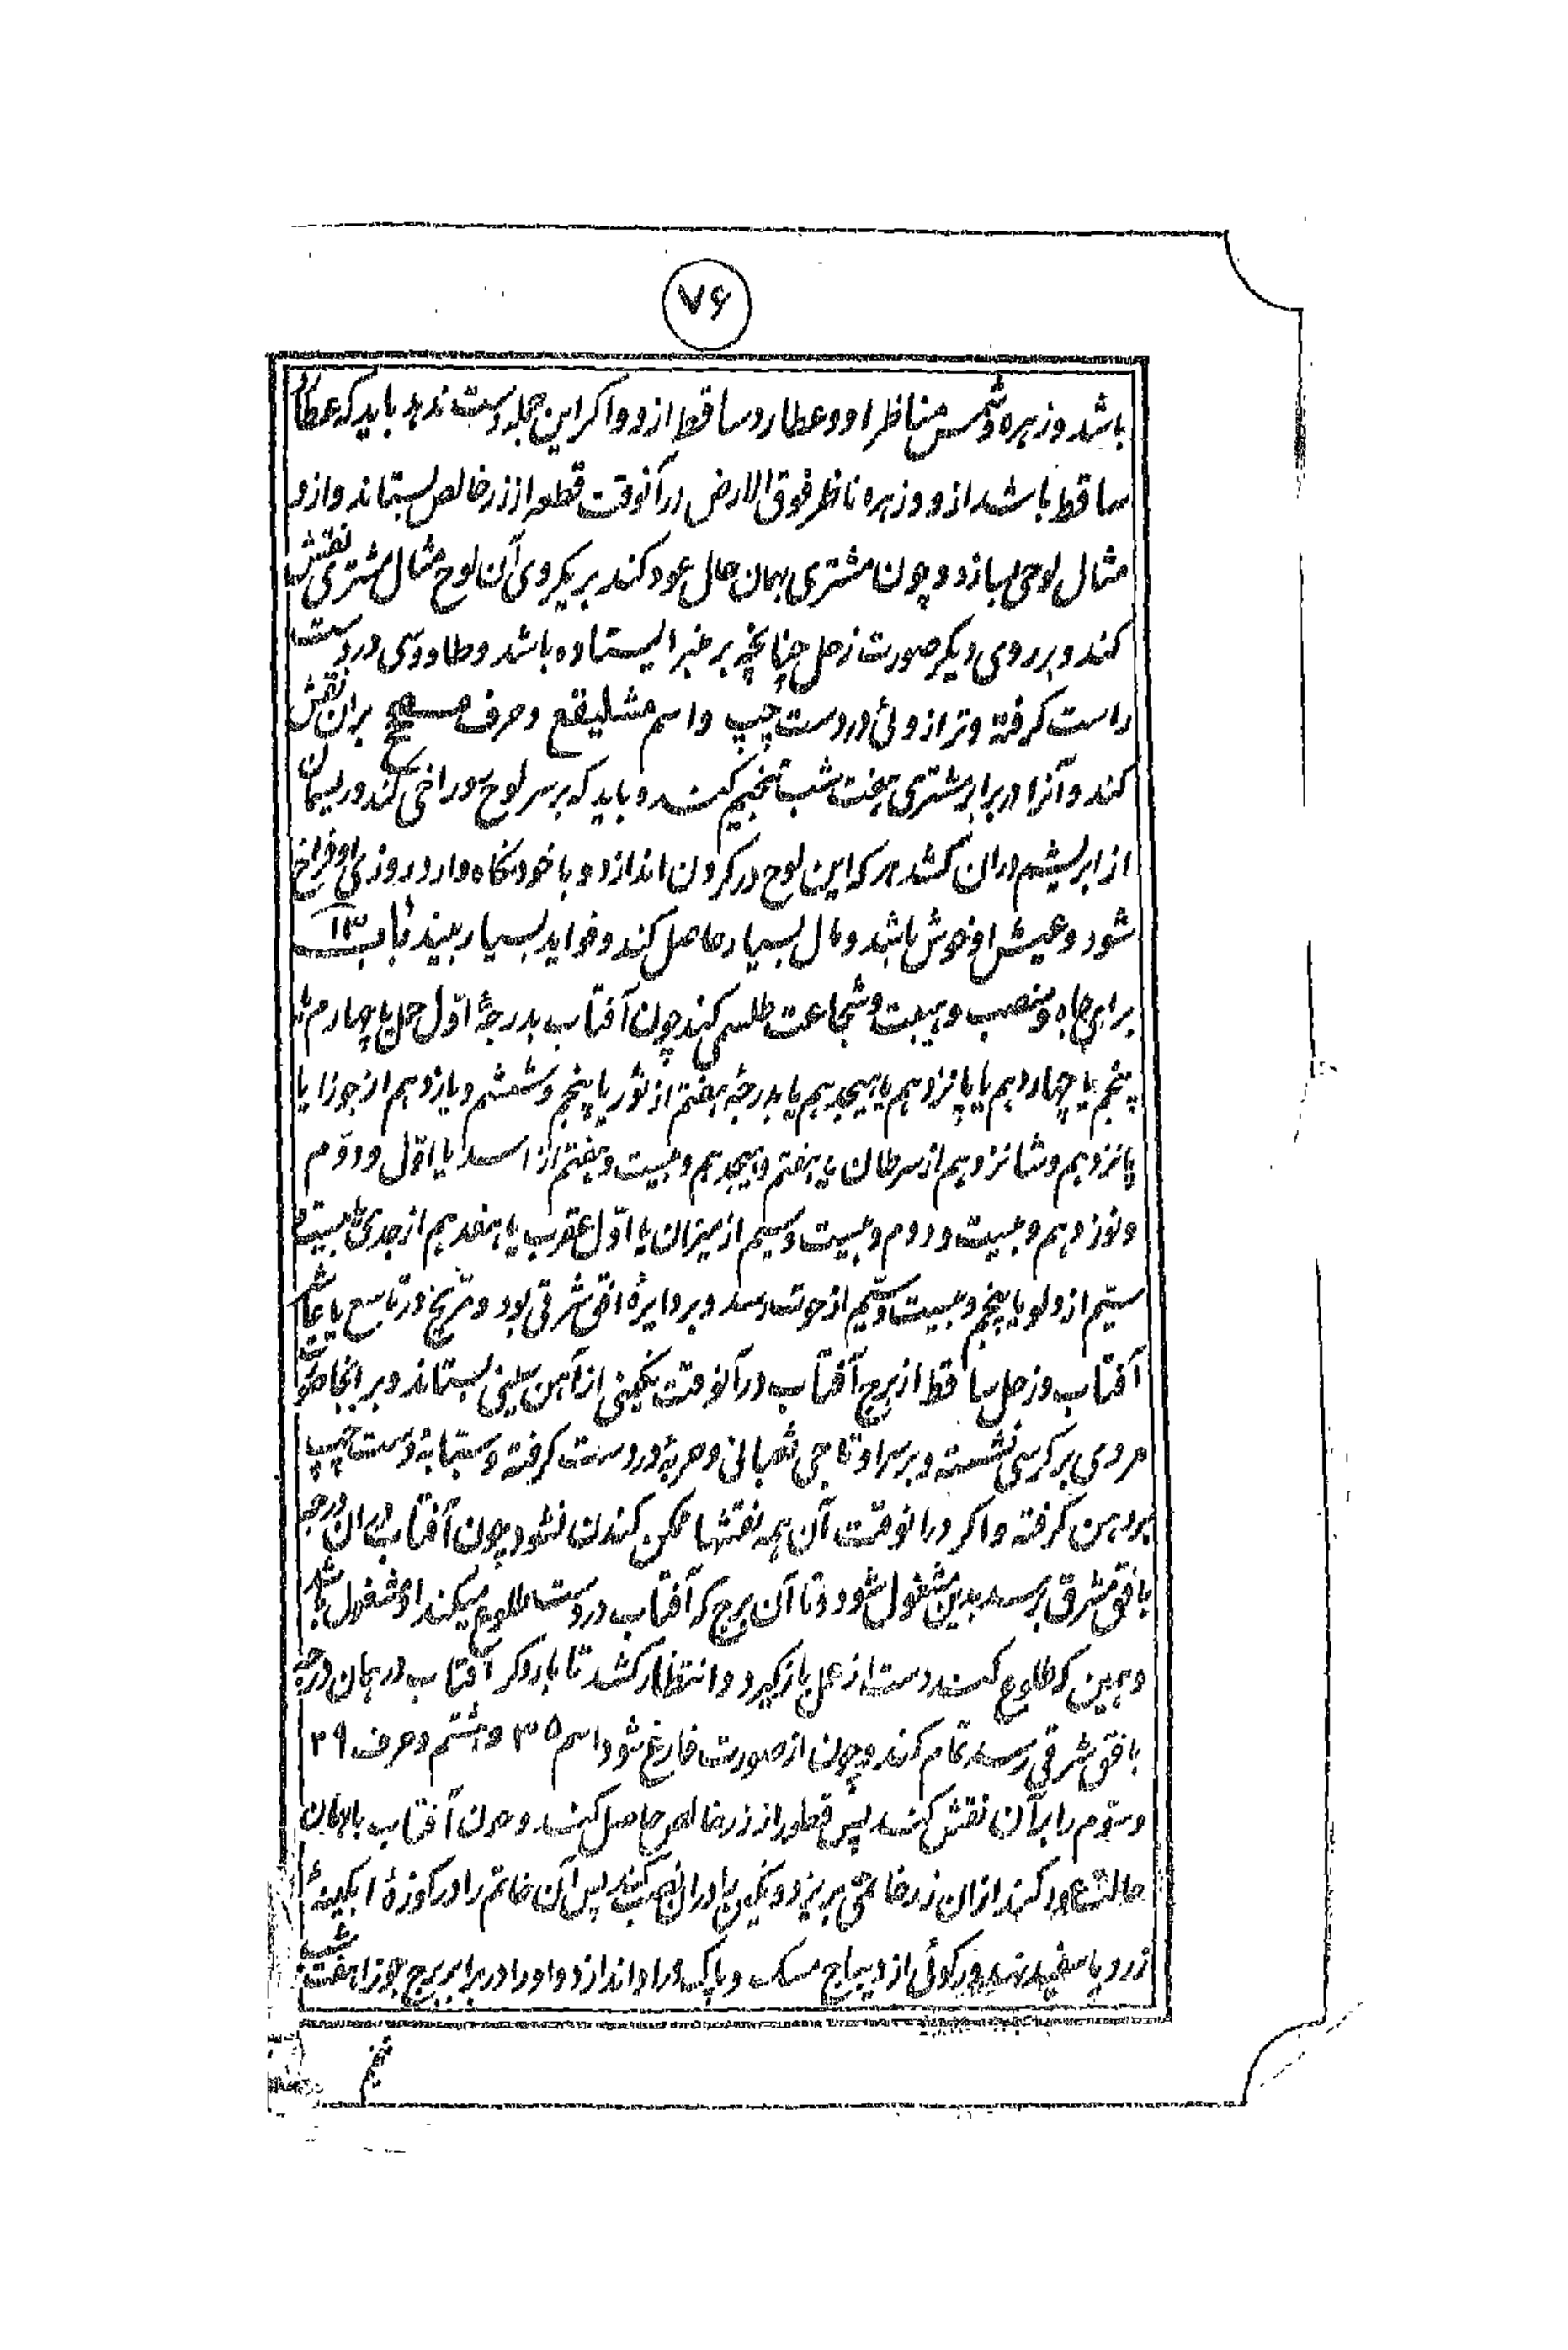 ۷۶
باشد و زهره و شمس مناظر او و عطارد ساقط ازو و اکر این جمله دست ندهد باید که عطارد
ساقط باشد ازو و زهره ناظر فوق الارض درآنوقت قطعه از زر خالص بستاند و ازو
مثال لوحی بسازد و چون مشتری بهمان حال عود کند بر یکروی آن لوح مثال مشتری نقش
کند و بر روی دیکر صورت زحل چنانچه بر منبر ایستاده باشد و طاووسی در دست
راست کرفته و ترازوئی در دست چپ و اسم مشلیقع و حرف بران نقش
کند و آنرا در برابر مشتری هفت شب تنجیم کند و باید که بر سر لوح سوراخی کند و ریسمان
از ابریشم دران کشد هر که این لوح در کردن اندازد و با خود نکاه دارد روزی او فراخ
شود و عیش او خوش باشد و مال بسیار حاصل کند و فواید بسیار بیند باب ۱۳
برای جاه و منصب و هیبت و شجاعت طلسم کند چون آفتاب بدرجهٔ اوّل حمل یا چهارم یا
پنجم یا چهاردهم یا پانزدهم یا هیجدهم یا بدرجهٔ هفتم از ثور یا پنجم و ششم و یازدهم از جوزا یا
پانزدهم و شانزدهم از سرطان یا هفتم و هیجدهم و بیست و هفتم از اسد یا اوّل و دوّم
و نوزدهم و بیست و دوم و بیست و سیم از میزان یا اوّل عقرب یا هفدهم از جدی یا بیست و
سیّم از دلو یا پنجم و بیست و سیّم از حوت رسد و بر دایرهٔ افق شرقی بود و مرّیخ در تاسع یا عاشر
آفتاب و زحل ساقط از برج آفتاب درآنوقت نکینی از آهن چینی بستاند و بر انجا صورت
مردی بر کرسی نشسته و بر سر او تاجی ثعبانی و حربهٔ در دست کرفته و سبّابهٔ دست چپ
بر دهن کرفته و اکر درانوقت آن همه نقشها ممکن کندن نشود چون آفتاب دران درجه
بافق مشرق برسد بدین مشغول شود و تا آن برج که آفتاب دروست طلوع میکند او مشغول باشد
و همین که طلوع کند دست از عمل بازکیرد و انتظار کشد تا بار دکر آفتاب در همان درجه
بافق شرقی رسد تمام کند و چون از صورت فارغ شود اسم ۳۵ و هشتم و حرف ۲۹
و سوّم را بر آن نقش کند پس قطعه از زر خالص حاصل کند و چون آفتاب باهمان
حالت عود کند ازان زر خاتمی بریزد و نکین را دران نصب کند پس آن خاتم را در کوزهٔ ابکینهٔ
زرد یا سفید نهد و رکوئی از دیباج سبک و پاک در او اندازد و او را در برابر برج جوزا هفت شب